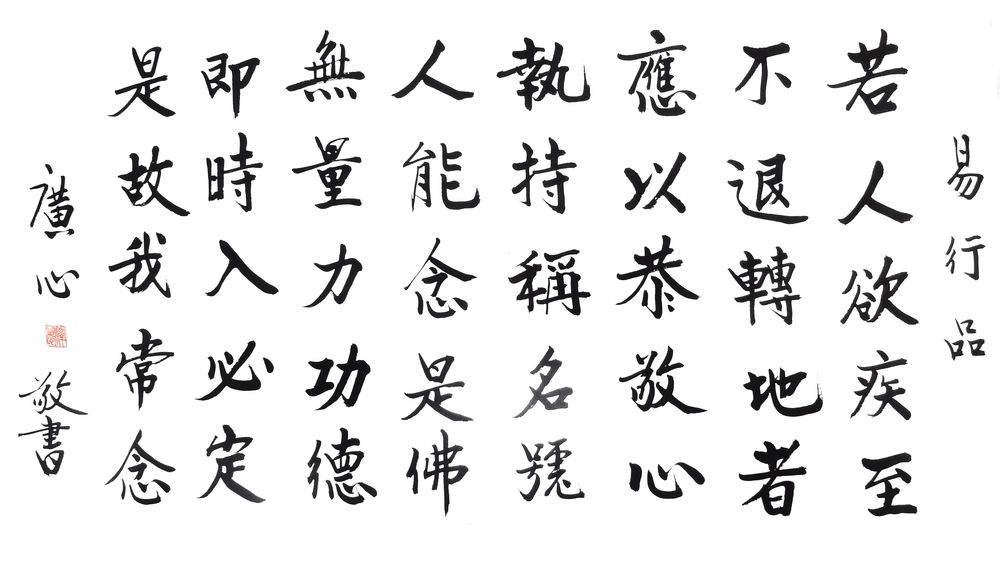 易行品
若人欲疾至
不退轉地者
應以恭敬心
執持稱名號
人能念是佛
無量力功德
即時入必定
是故我常念
廣心
敬書